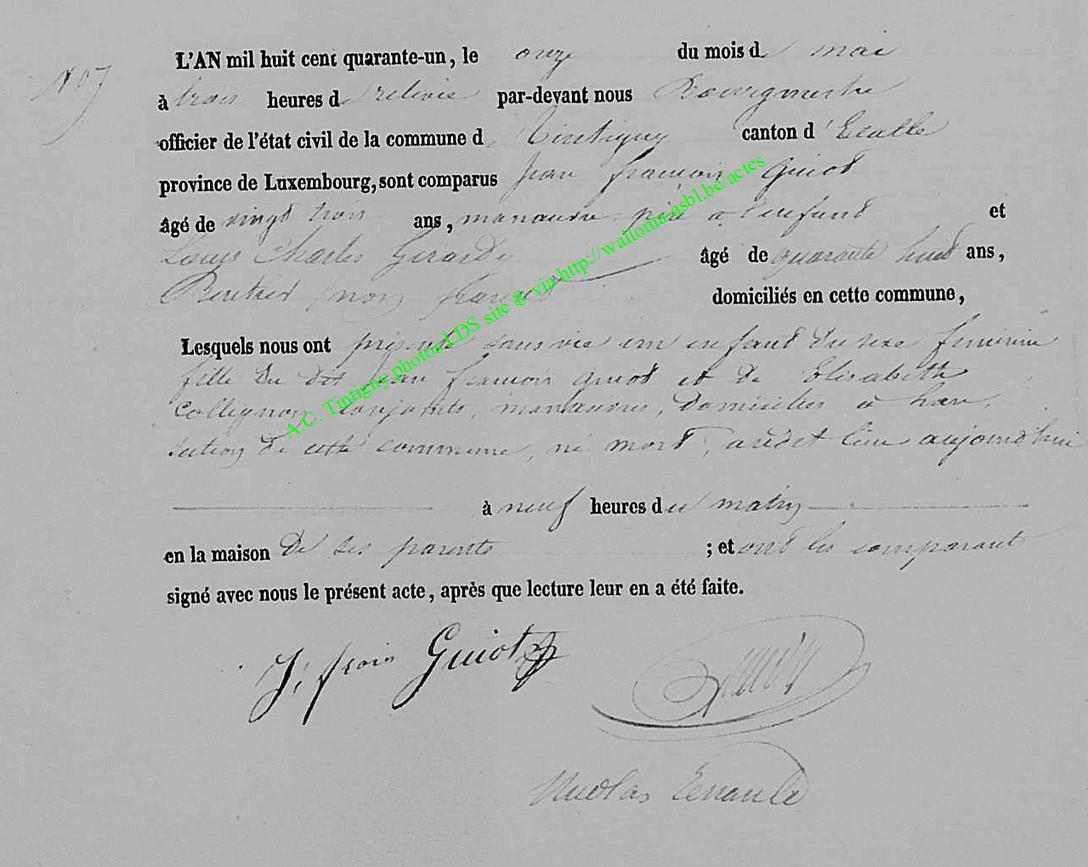 N° 7
L'AN mil huit cent quarante-un, le onze du mois d mai
à trois heures d relevée par-devant nous Bourgmestre
officier de l'état civil de la commune d Tintigny canton d' Etalle
province de Luxembourg, sont comparus Jean françois Guiot
âgé de vingt trois ans, manœuvre père à l'enfant et
Louis Charles Gerardy âgé de quarante huit ans,
Rentier non parent domiciliés en cette commune,
Lesquels nous ont présenté sans vie un enfant du sexe féminin
fille du dit Jean françois Guiot et de Elisabeth
Collignon conjoints, manœuvres, domiciliés à han,
section de cette commune, né mort, audit lieu aujourd'hui
à neuf heures du matin
en la maison de ses parents ; et ont les comparants
signé avec nous le présent acte, après que lecture leur en a été faite.
J, frois Guiot
Nicolas
A.C. Tintigny photos LDS site @ via http://wallonia-asbl.be/actes